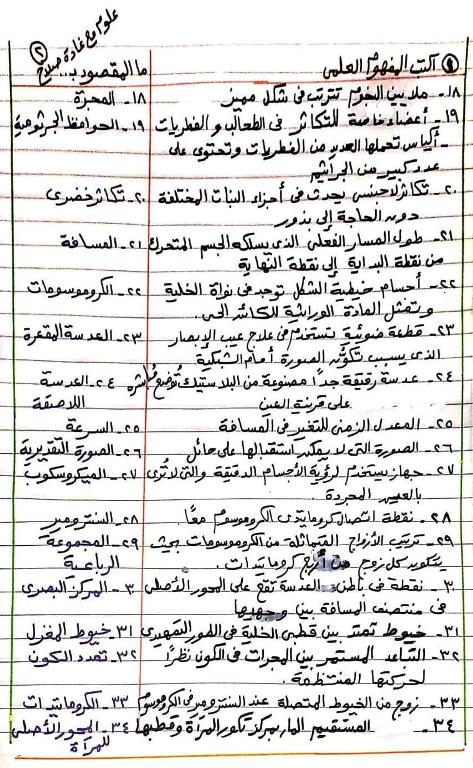 علوم مع غادة صلاح
(٢)
① اكتب المفهوم العلمى | ما المقصود ب..
١٨- ملايين النجوم تترتب فى شكل مميز | ١٨- المجرة
١٩- أعضاء خاصة للتكاثر فى الطحالب والفطريات | ١٩- الحوافظ الجرثومية
- أكياس تحملها العديد من الفطريات وتحتوى على
عدد كبير من الجراثيم
٢٠- تكاثر لاجنسى يحدث فى أجزاء النبات المختلفة | ٢٠- تكاثر خضرى
دون الحاجة إلى بذور
٢١- طول المسار الفعلى الذى يسلكه الجسم المتحرك | ٢١- المسافة
من نقطة البداية إلى نقطة النهاية
٢٢- أجسام خيطية الشكل توجد فى نواة الخلية | ٢٢- الكروموسومات
وتمثل المادة الوراثية للكائن الحى.
٢٣- قطعة ضوئية تستخدم فى علاج عيب الإبصار | ٢٣- العدسة المقعرة
الذى يسبب تكوُّن الصورة أمام الشبكية
٢٤- عدسة رقيقة جداً مصنوعة من البلاستيك تُوضع مُباشرة | ٢٤- العدسة
على قرنية العين | اللاصقة
٢٥- المعدل الزمنى للتغير فى المسافة | ٢٥- السرعة
٢٦- الصورة التى لا يمكن استقبالها على حائل | ٢٦- الصورة التقديرية
٢٧- جهاز يستخدم لرؤية الأجسام الدقيقة والتى لا تُرى | ٢٧- الميكروسكوب
بالعين المجردة.
٢٨- نقطة اتصال كروماتيدى الكروموسوم معًا. | ٢٨- السنترومير
٢٩- ترتيب الأزواج المتماثلة من الكروموسومات بحيث | ٢٩- المجموعة
يتكون كل زوج من أربع كروماتيدات. | الرباعية
٣٠- نقطة فى باطن العدسة تقع على المحور الأصلى | ٣٠- المركز البصرى
فى منتصف المسافة بين وجهيها
٣١- خيوط تمتد بين قطبى الخلية فى الطور التمهيدى | ٣١- خيوط المغزل
٣٢- التباعد المستمر بين المجرات فى الكون نظراً | ٣٢- تمدد الكون
لحركتها المنتظمة.
٣٣- زوج من الخيوط المتصلة عند السنترومير فى الكروموسوم | ٣٣- الكروماتيدات
٣٤- المستقيم المار بمركز تكور المرآة وقطبها | ٣٤- المحور الأصلى
للمرآة